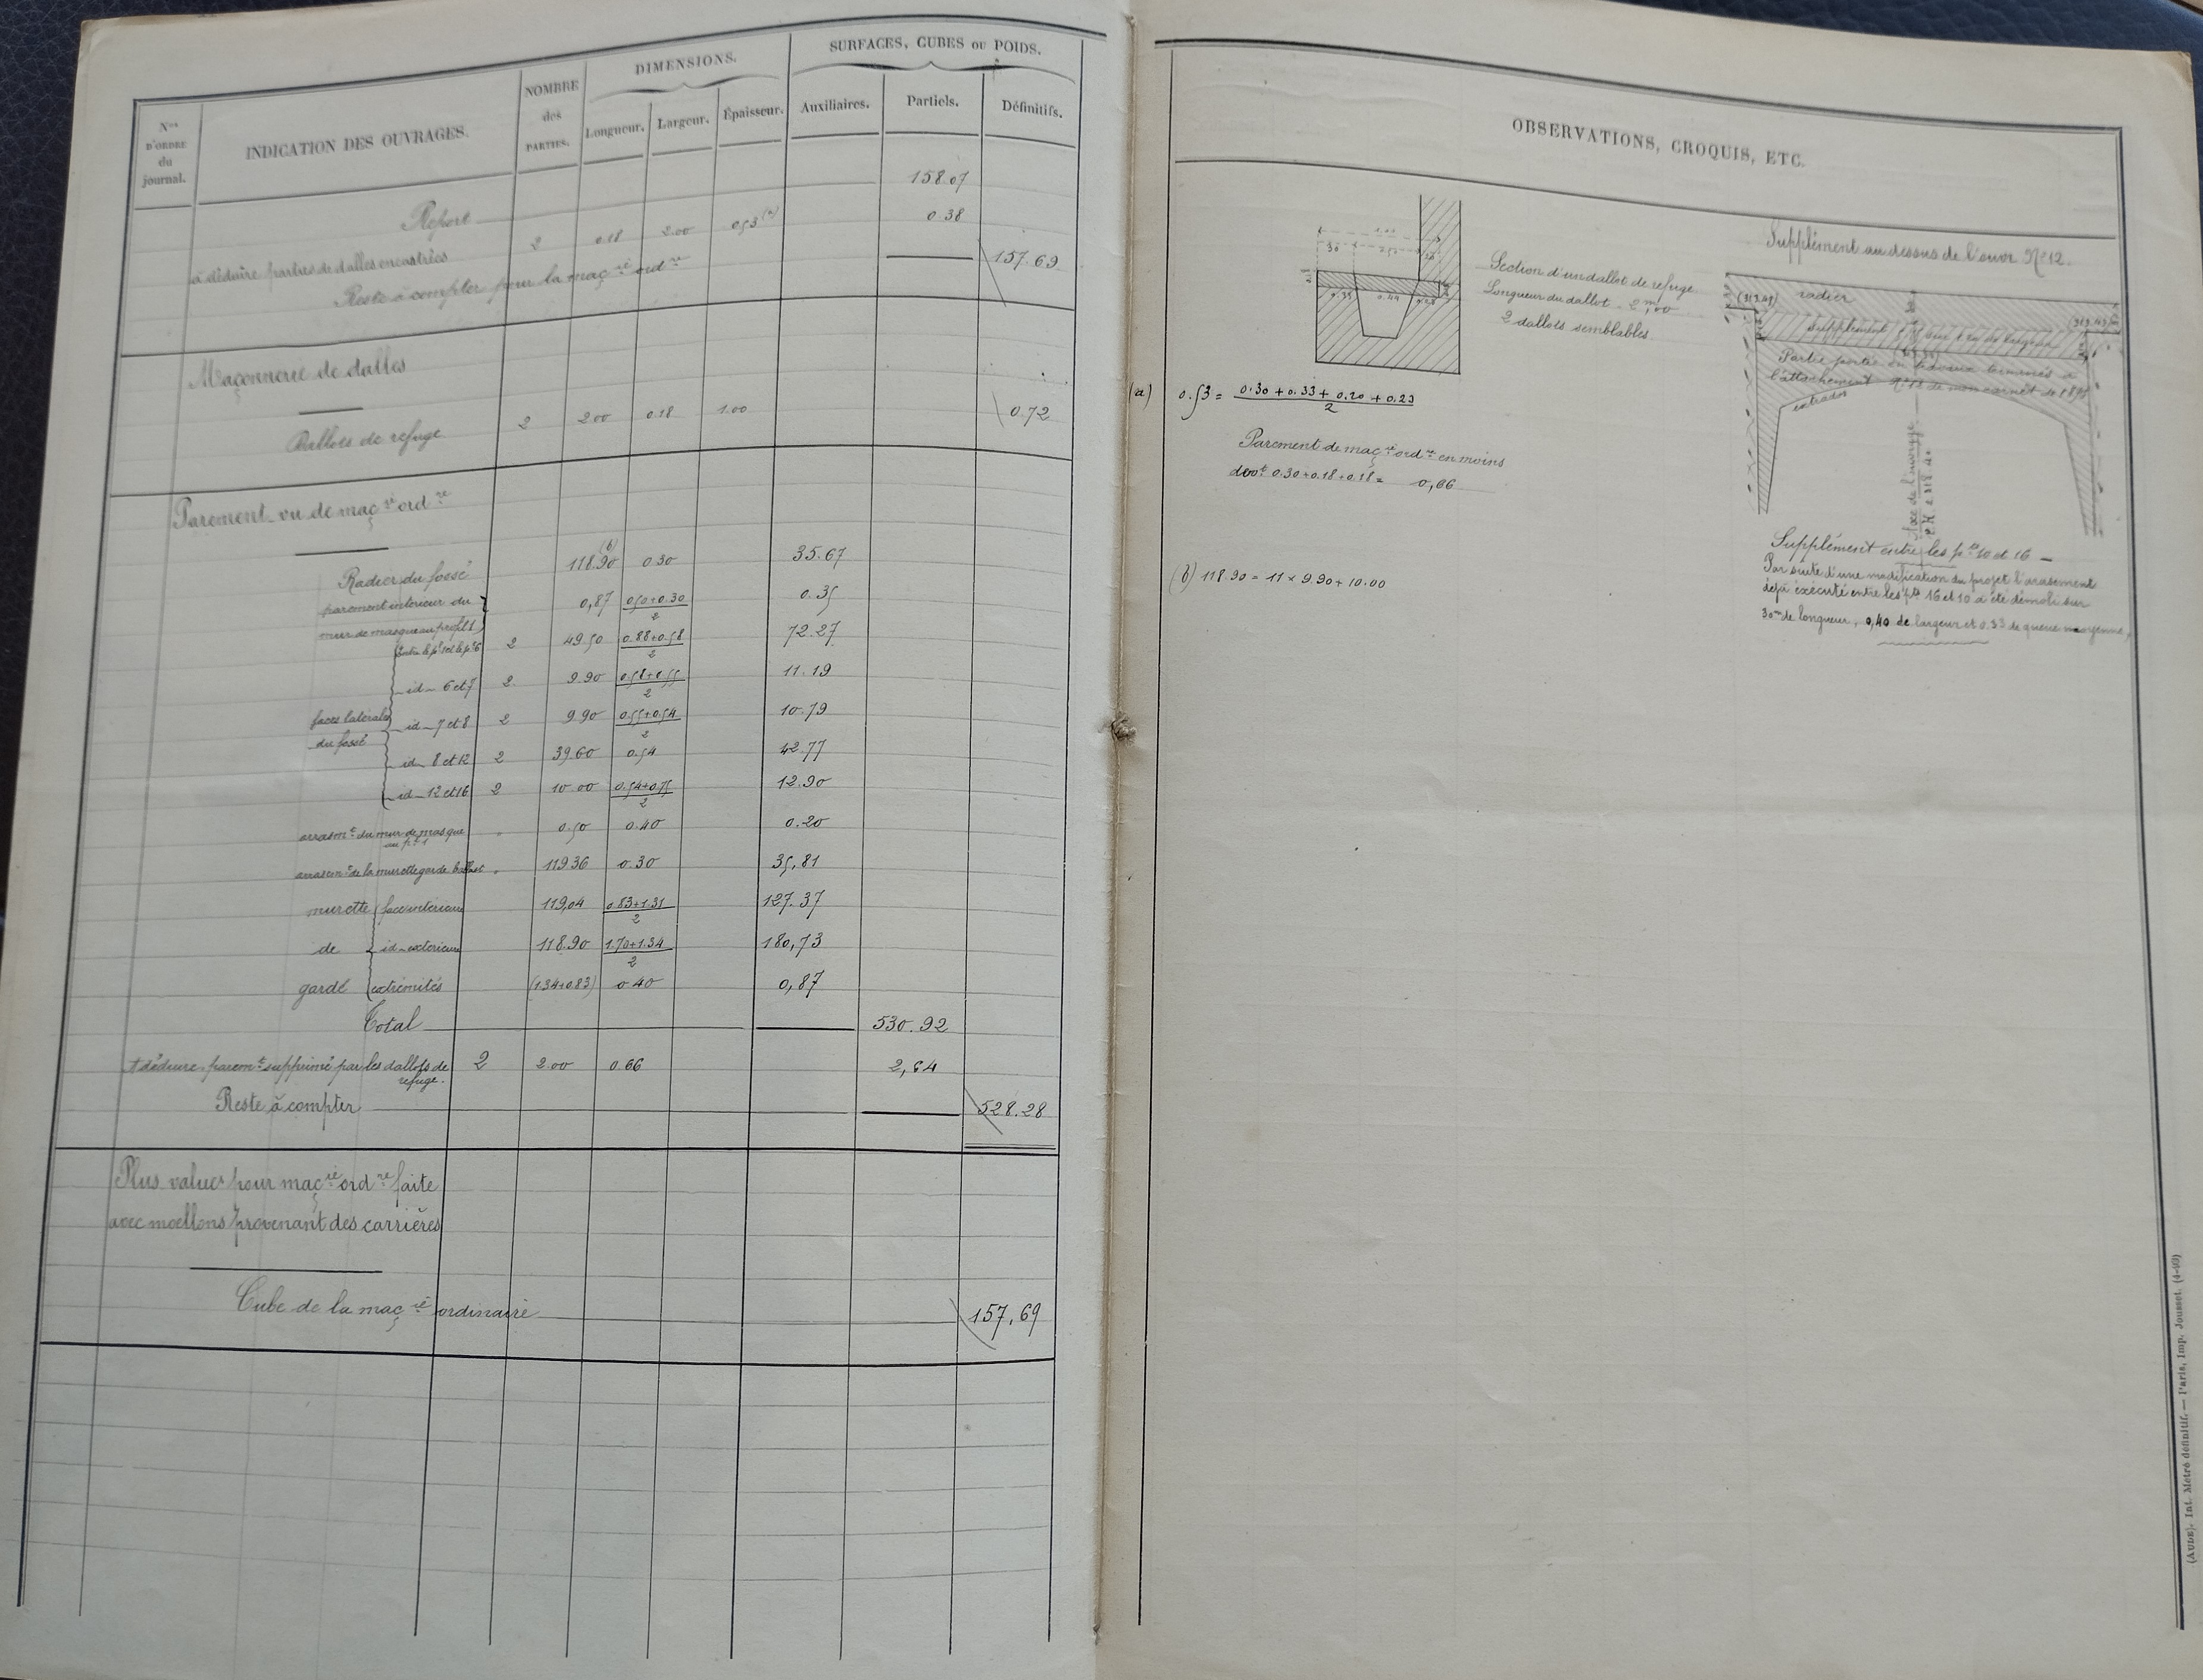 Nos D'ORDRE du journal.
INDICATION DES OUVRAGES.
NOMBRE des PARTIES.
DIMENSIONS.
Longueur. Largeur. Épaisseur.
SURFACES, CUBES OU POIDS.
Auxiliaires. Partiels. Définitifs.
Report 158.07
à déduire parties de dalles encastrées 2 0.18 2.00 0,53 (a) 0.38
Reste à compter pour la maç rie ord re 157.69
Maçonnerie de dalles
Dallots de refuge 2 2.00 0.18 1.00 0.72
Parement vu de maç rie ord re
Radier du fossé 118.90 (b) 0.30 35.67
parement intérieur du mur de masque au profil 1 0,87 0.50+0.30/2 0.35
faces latérales du fossé
entre le pl 1 et le pl 6 2 49.50 0.88+0.58/2 72.27
id - 6 et 7 2 9.90 0.58+0.55/2 11.19
id - 7 et 8 2 9.90 0.55+0.54/2 10.79
id - 8 et 12 2 39.60 0.54 42.77
id - 12 et 16 2 10.00 0.54+0.75/2 12.90
arrasmt du mur de masque au pl 1 0.50 0.40 0.20
arrasemt de la murette garde ballast 119.36 0.30 35,81
murette de garde
face intérieure 119,04 0.83+1.31/2 127.37
id - extérieure 118.90 1.70+1.34/2 180,73
extrémités (1.34+0.83) 0.40 0,87
Total 530.92
A déduire paremt supprimé par les dallots de refuge. 2 2.00 0.66 2,64
Reste à compter 528.28
Plus values pour maç rie ord re faite
avec moellons provenant des carrières
Cube de la maç rie ordinaire 157,69
OBSERVATIONS, CROQUIS, ETC.
Section d'un dallot de refuge
Longueur du dallot - 2m,00
2 dallots semblables.
0.33 0.44
(a) 0.53 = 0.30 + 0.33 + 0.20 + 0.23/2
Parement de maç rie ord re en moins
0.30+0.18+0.18 = 0,66
(b) 118.90 = 11 × 9.90 + 10.00
Supplément au dessus de l'ouvr N° 12.
radier
supplément
Partie portée en travaux terminés à
l'attachement N° 18 de mon carnet de 1895
extrados
Axe de l'ouvrage
Supplément entre les pls 10 et 16 -
Par suite d'une modification du projet l'arasement
déjà exécuté entre les pls 16 et 10 a été démoli sur
30m de longueur, 0,40 de largeur et 0.33 de queue moyenne,
(AUDE). Int. Métré définitif. — Paris, Imp. Jousset. (4-93)